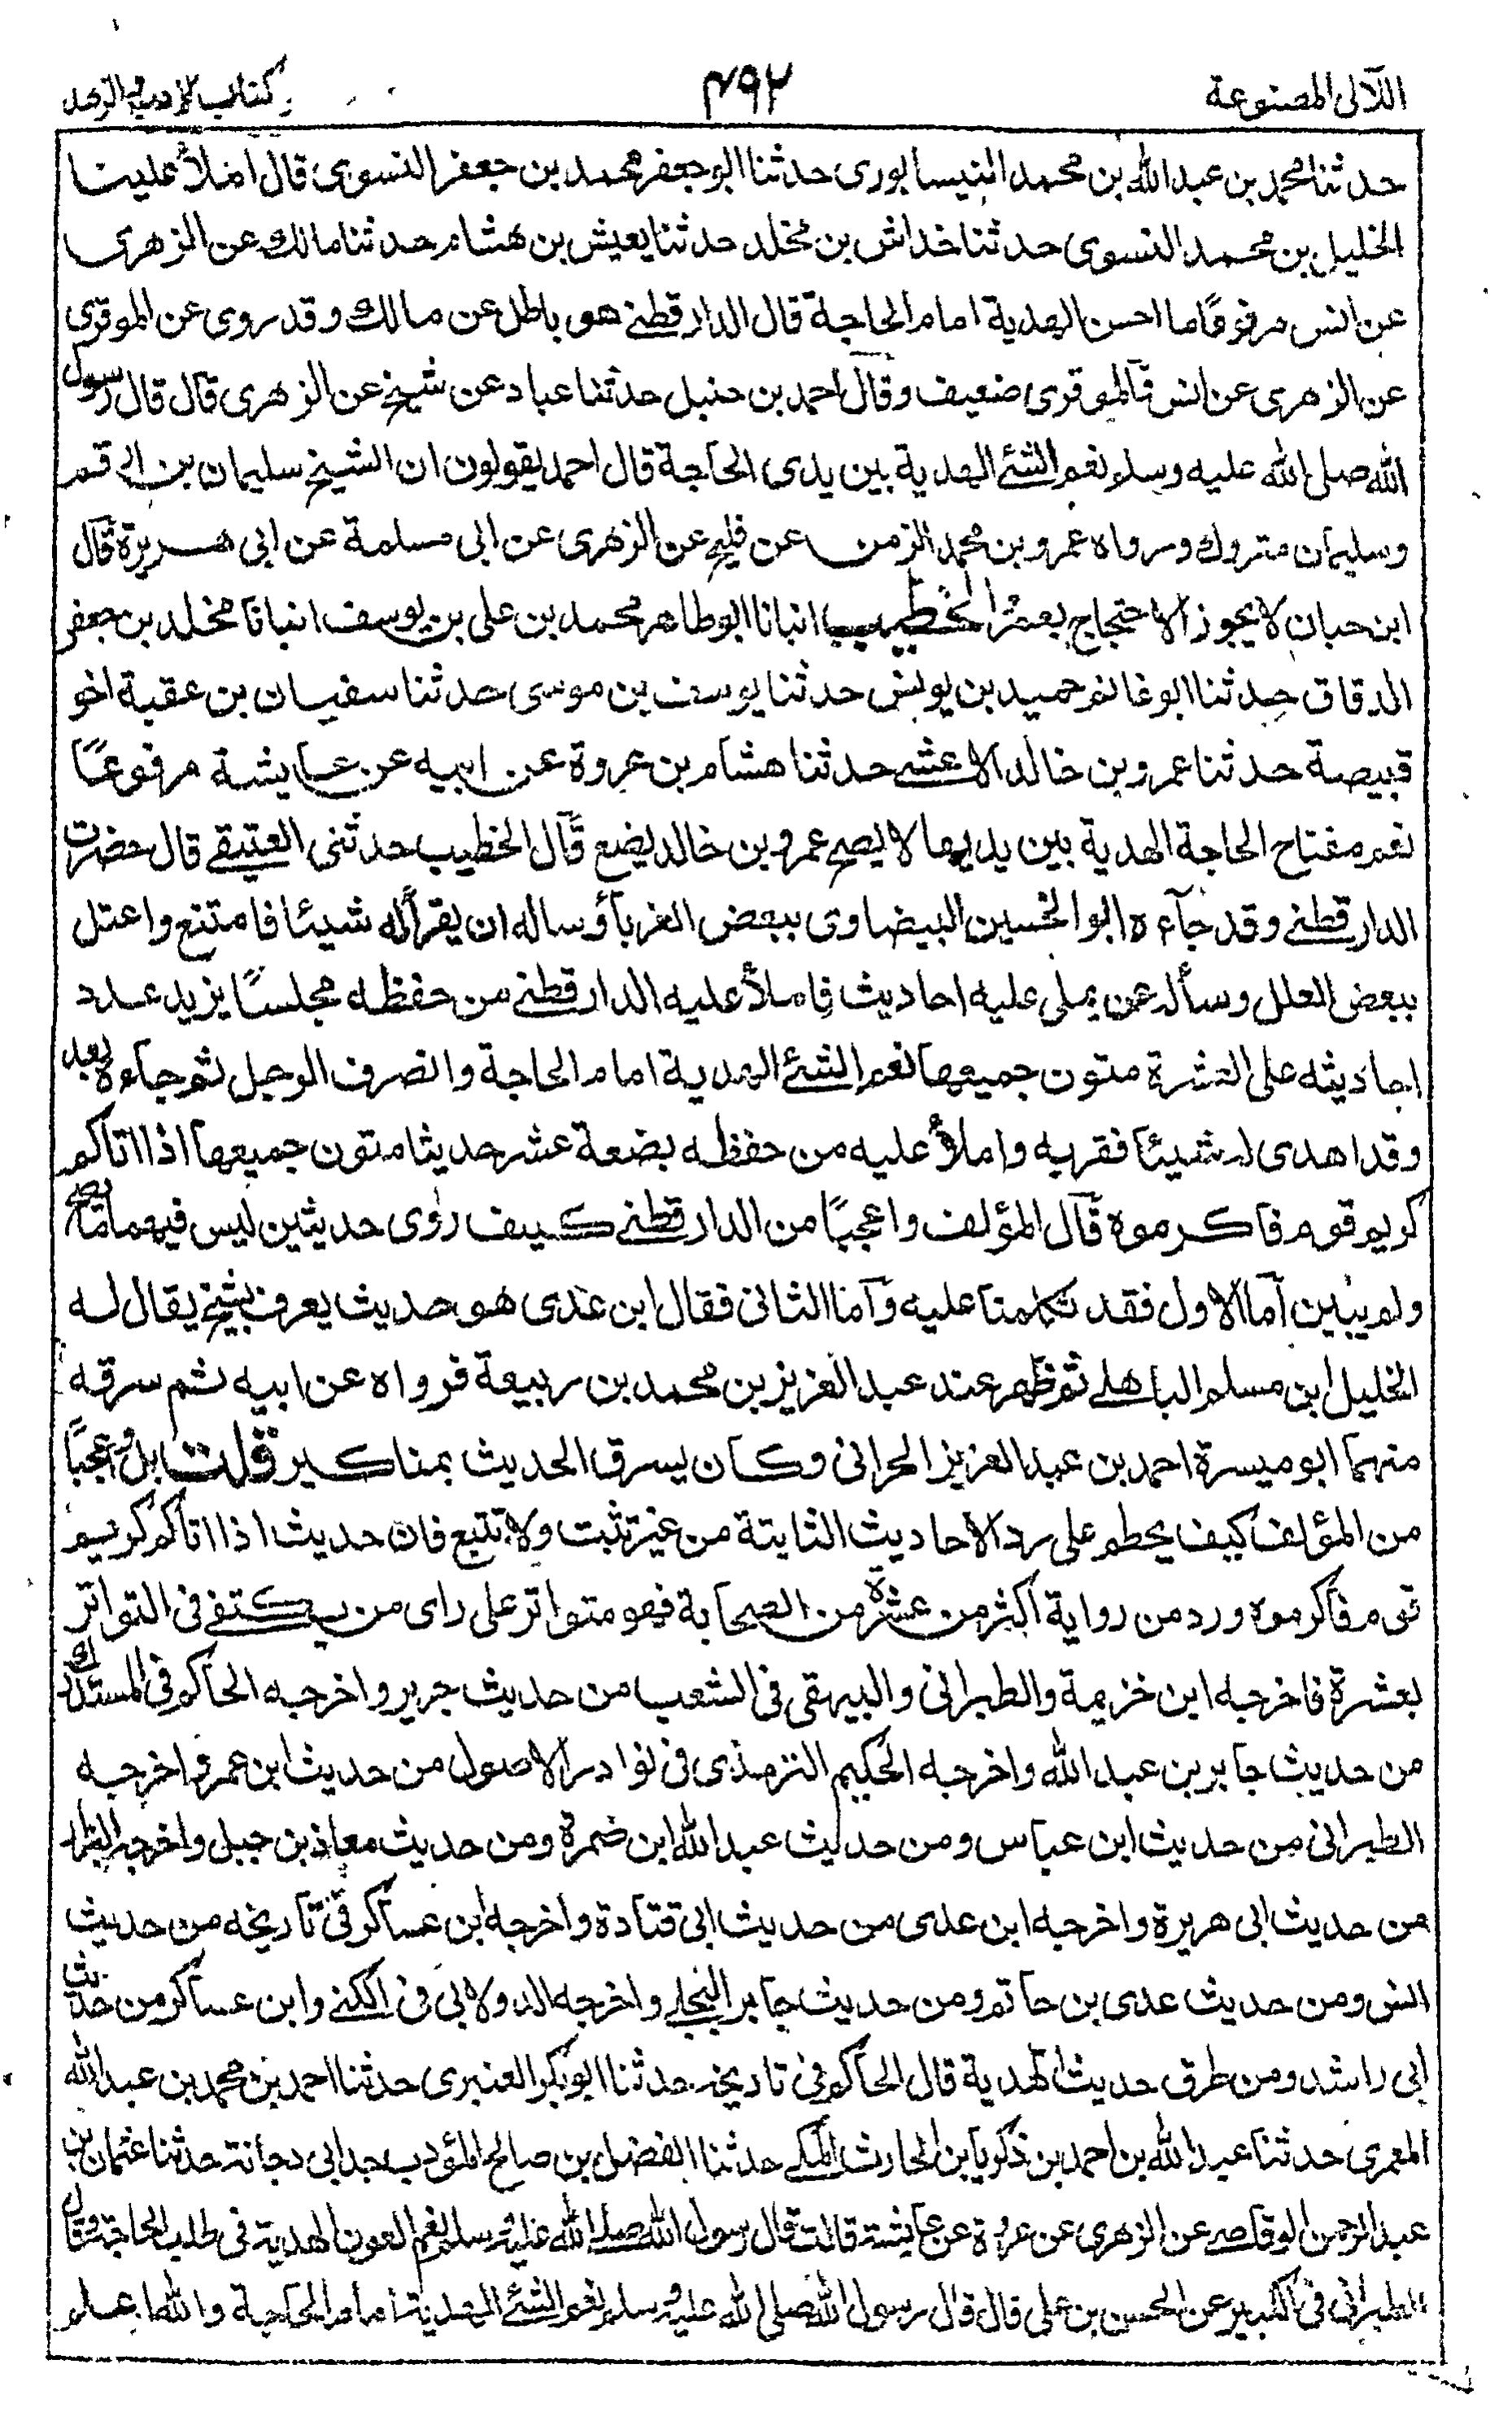 اللآلى المصنوعة
٤٩٢
كتاب الادب والزهد
حدثنا محمد بن عبد الله بن محمد النيسابورى حدثنا ابو جعفر محمد بن جعفر النسوى قال املأ علينا
الخليل بن محمد النسوى حدثنا خداش بن مخلد حدثنا يعيش بن هشام حدثنا مالك عن الزهرى
عن انس مرفوعًا ما احسن الهدية امام الحاجة قال الدارقطنى هو باطل عن مالك وقد روى عن الموقرى
عن الزهرى عن انس قآ الموقرى ضعيف وقال احمد بن حنبل حدثنا عباد عن شيخ عن الزهرى قال قال رسول
الله صلى الله عليه وسلم نعم الشئ الهدية بين يدى الحاجة قال احمد يقولون ان الشيخ سليمان بن ارقم
وسليمان متروك ورواه عمرو بن محمد الزمن عن فليح عن الزهرى عن ابى مسلمة عن ابى هريرة قال
ابن حبان لا يجوز الاحتجاج بعمرٍ الخطيب انبانا ابو طاهر محمد بن على بن يوسف انبانا مخلد بن جعفر
الدقاق حدثنا ابو غانم حميد بن يونس حدثنا يوسف بن موسى حدثنا سفيان بن عقبة اخو
قبيصة حدثنا عمرو بن خالد الاعشى حدثنا هشام بن عروة عن ابيه عن عايشة مرفوعًا
نعم مفتاح الحاجة الهدية بين يديها لا يصح عمرو بن خالد يضع قال الخطيب حدثنى العتيقى قال حضرت
الدارقطنى وقد جآءه ابو الحسين البيضاوى ببعض الغربآؤ ساله ان يقرأ له شيئا فامتنع واعتل
ببعض العلل وسأله عن يملى عليه احاديث فاملأ عليه الدارقطنى من حفظه مجلسًا يزيد عدد
احاديثه على العشرة متون جميعها نعم الشئ الهدية امام الحاجة وانصرف الرجل ثم جاءه بعد
وقد اهدى له شيئا فقربه واملأ عليه من حفظه بضعة عشر حديثا متون جميعها اذا اتاكم
كريم قوم فاكرموه قال المؤلف واعجبًا من الدارقطنى كيف روى حديثين ليس فيهما ما يصح
ولم يبين آما الاول فقد تكلمنا عليه وآما الثانى فقال ابن عدى هو حديث يعرف بشيخ يقال له
الخليل ابن مسلم الباهلى ثم ظهر عند عبد العزيز بن محمد بن ربيعة فرواه عن ابيه ثم سرقه
منهما ابو ميسرة احمد بن عبد العزيز الحرانى وكان يسرق الحديث بمناكير قلت بل واعجبًا
من المؤلف كيف يحطم على رد الاحاديث الثابتة من غير تثبت ولا تتبع فان حديث اذا اتاكم كريم
قوم فاكرموه ورد من رواية اكثر من عشرة من الصحابة فهو متواتر على راى من يكتفى فى التواتر
بعشرة فاخرجه ابن خزيمة والطبرانى والبيهقى فى الشعب من حديث جرير واخرجه الحاكم فى المستدرك
من حديث جابر بن عبد الله واخرجه الحكيم الترمذى فى نوادر الاصول من حديث ابن عمر واخرجه
الطبرانى من حديث ابن عباس ومن حديث عبد الله ابن ضمرة ومن حديث معاذ بن جبل واخرجه البزار
من حديث ابى هريرة واخرجه ابن عدى من حديث ابى قتادة واخرجه ابن عساكر فى تاريخه من حديث
انس ومن حديث عدى بن حاتم ومن حديث جابر البجلى واخرجه الدولابى فى الكنى وابن عساكر من حديث
ابى راشد ومن طرق حديث الهدية قال الحاكم فى تاريخه حدثنا ابو بكر العنبرى حدثنا احمد بن محمد بن عبد الله
المعمرى حدثنا عبد الله بن احمد بن ذكريا بن الحارث المكى حدثنا الفضل بن صالح المؤدب جد ابى دجانة حدثنا عثمان بن
عبد الرحمن الوقاصى عن الزهرى عن عروة عن عايشة قالت قال رسول الله صلى الله عليه وسلم نعم العون الهدية فى طلب الحاجة وقال
الطبرانى فى الكبير عن الحسن بن على قال قال رسول الله صلى الله عليه وسلم نعم الشئ الهدية امام الحاجة والله اعلم